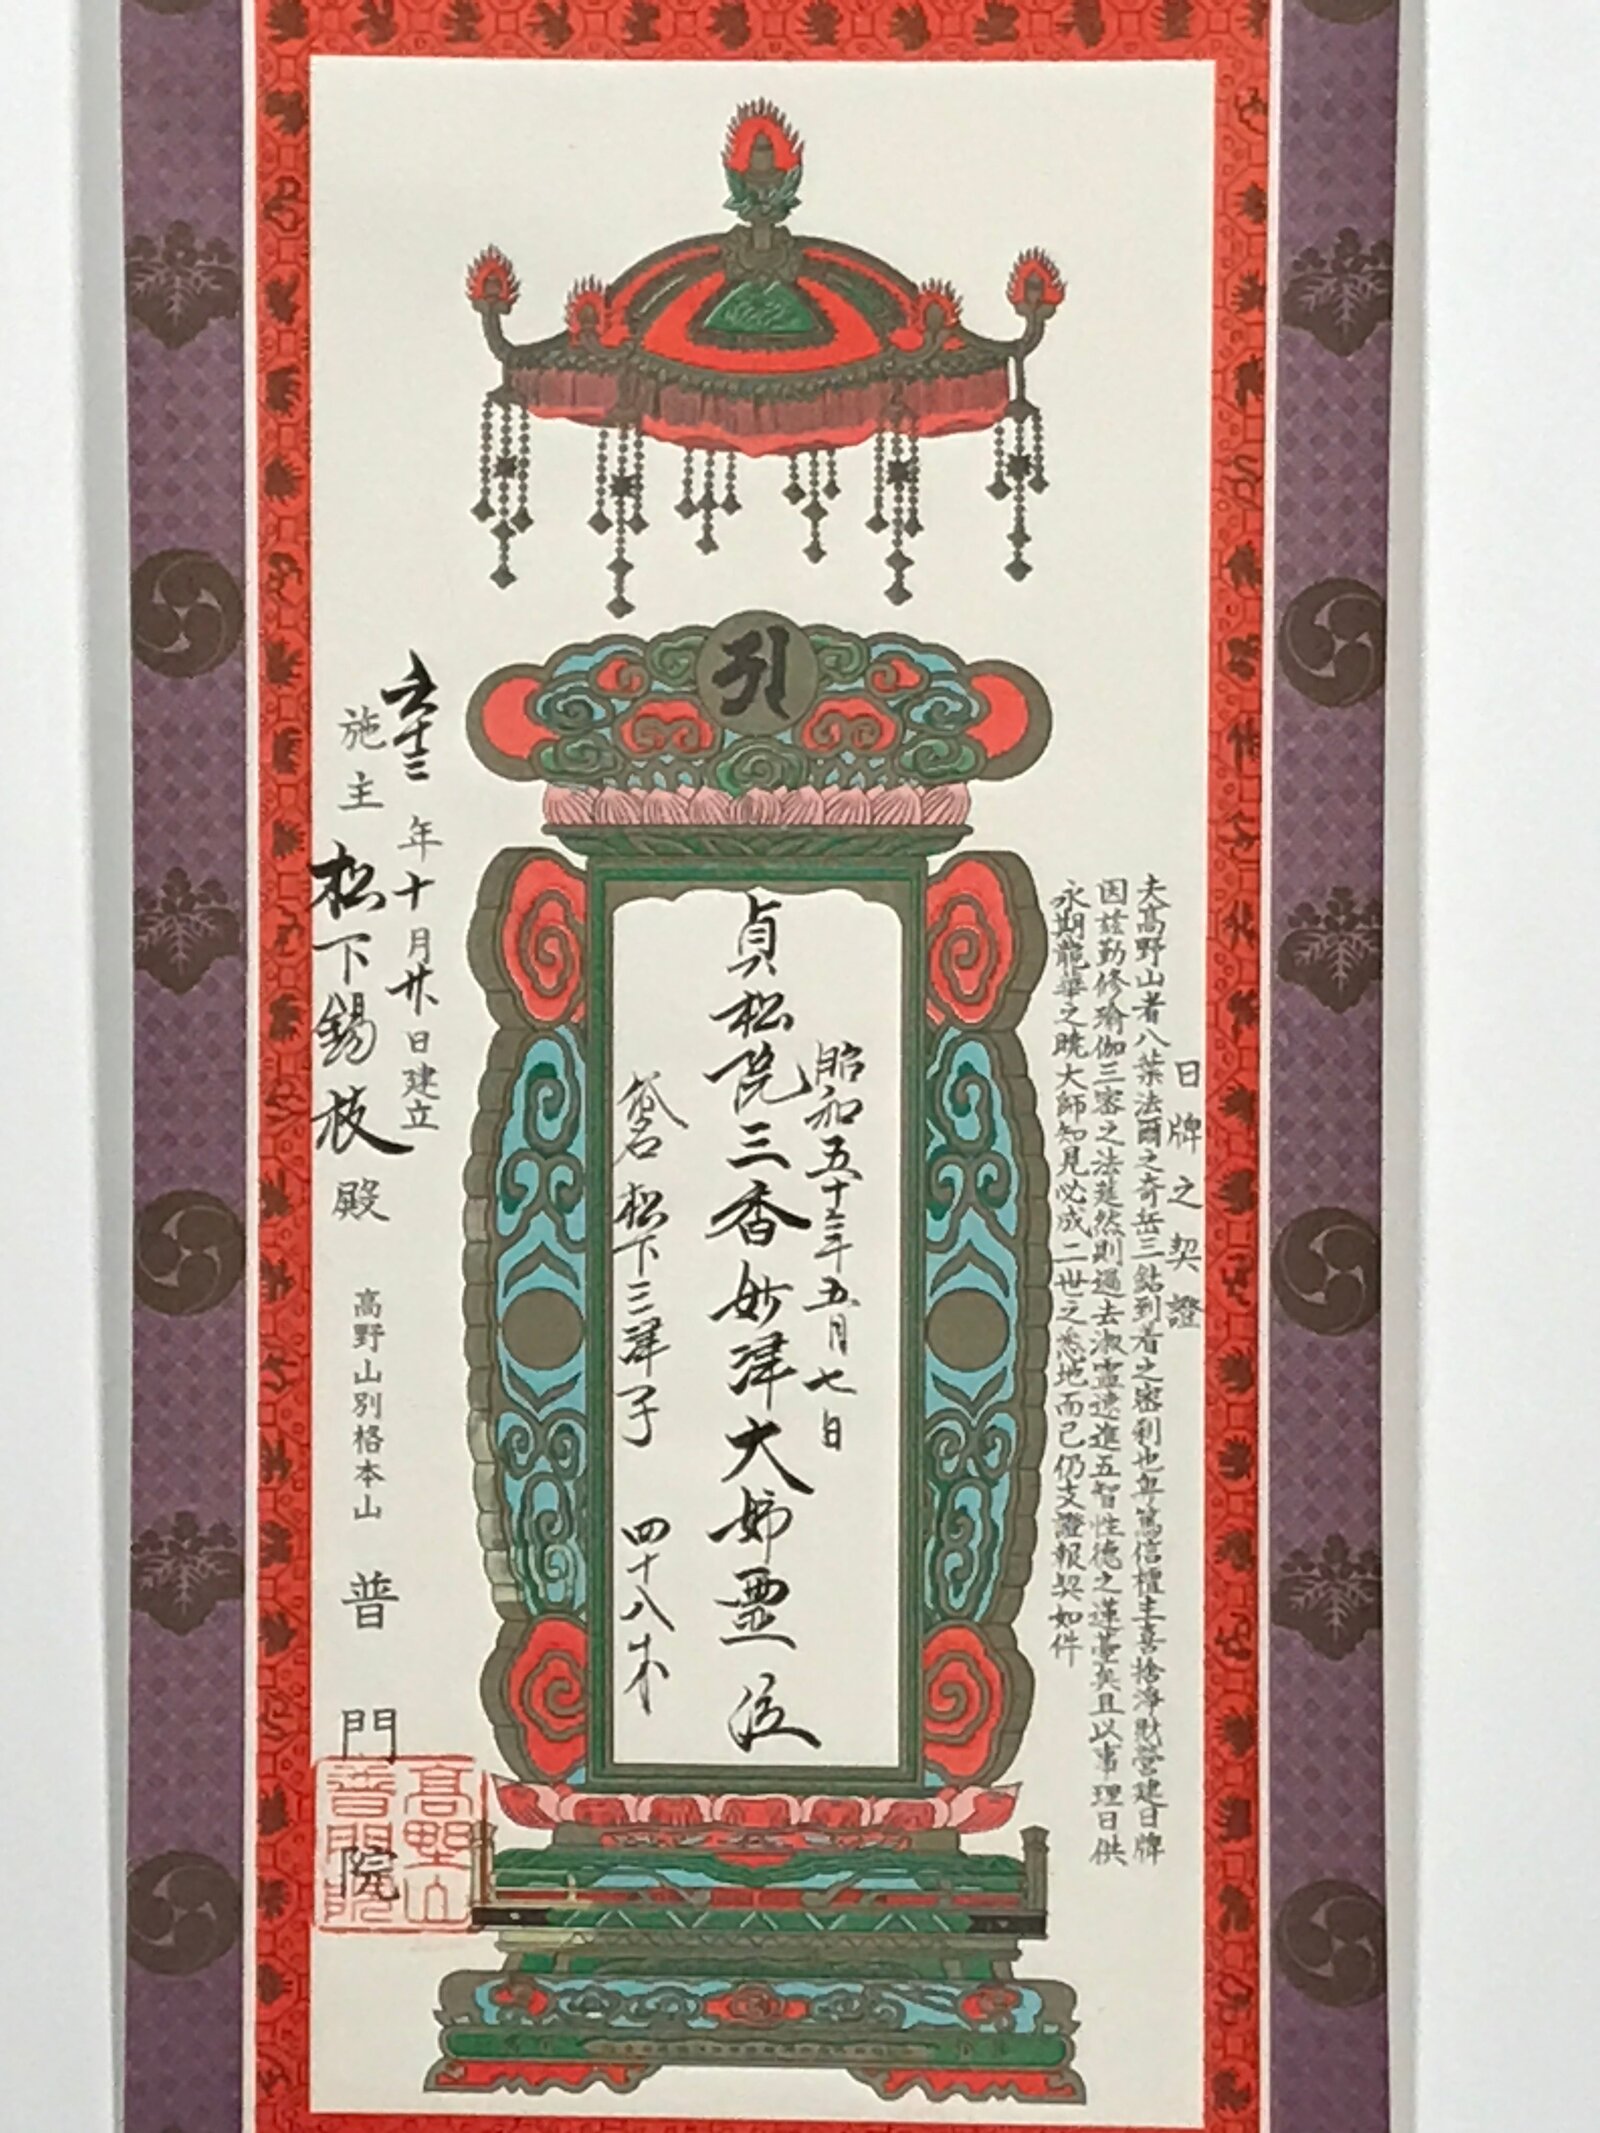 日牌之契證
夫高野山者八葉法爾之奇岳三鈷到着之密刹也與篤信檀主喜捨淨財營建日牌
因茲勤修瑜伽三密之法莚然則過去淑靈速進五智性德之蓮臺矣且以事理日供
永期龍華之曉大師知見必成二世之悉地而已仍支證報契如件
𑖀
昭和五十三年五月七日
貞松院三香妙津大姉霊位
俗名 松下三津子 四十八才
五十三年十月廿日建立
施主 松下錫枝殿
高野山別格本山 普門院
高野山
普門院